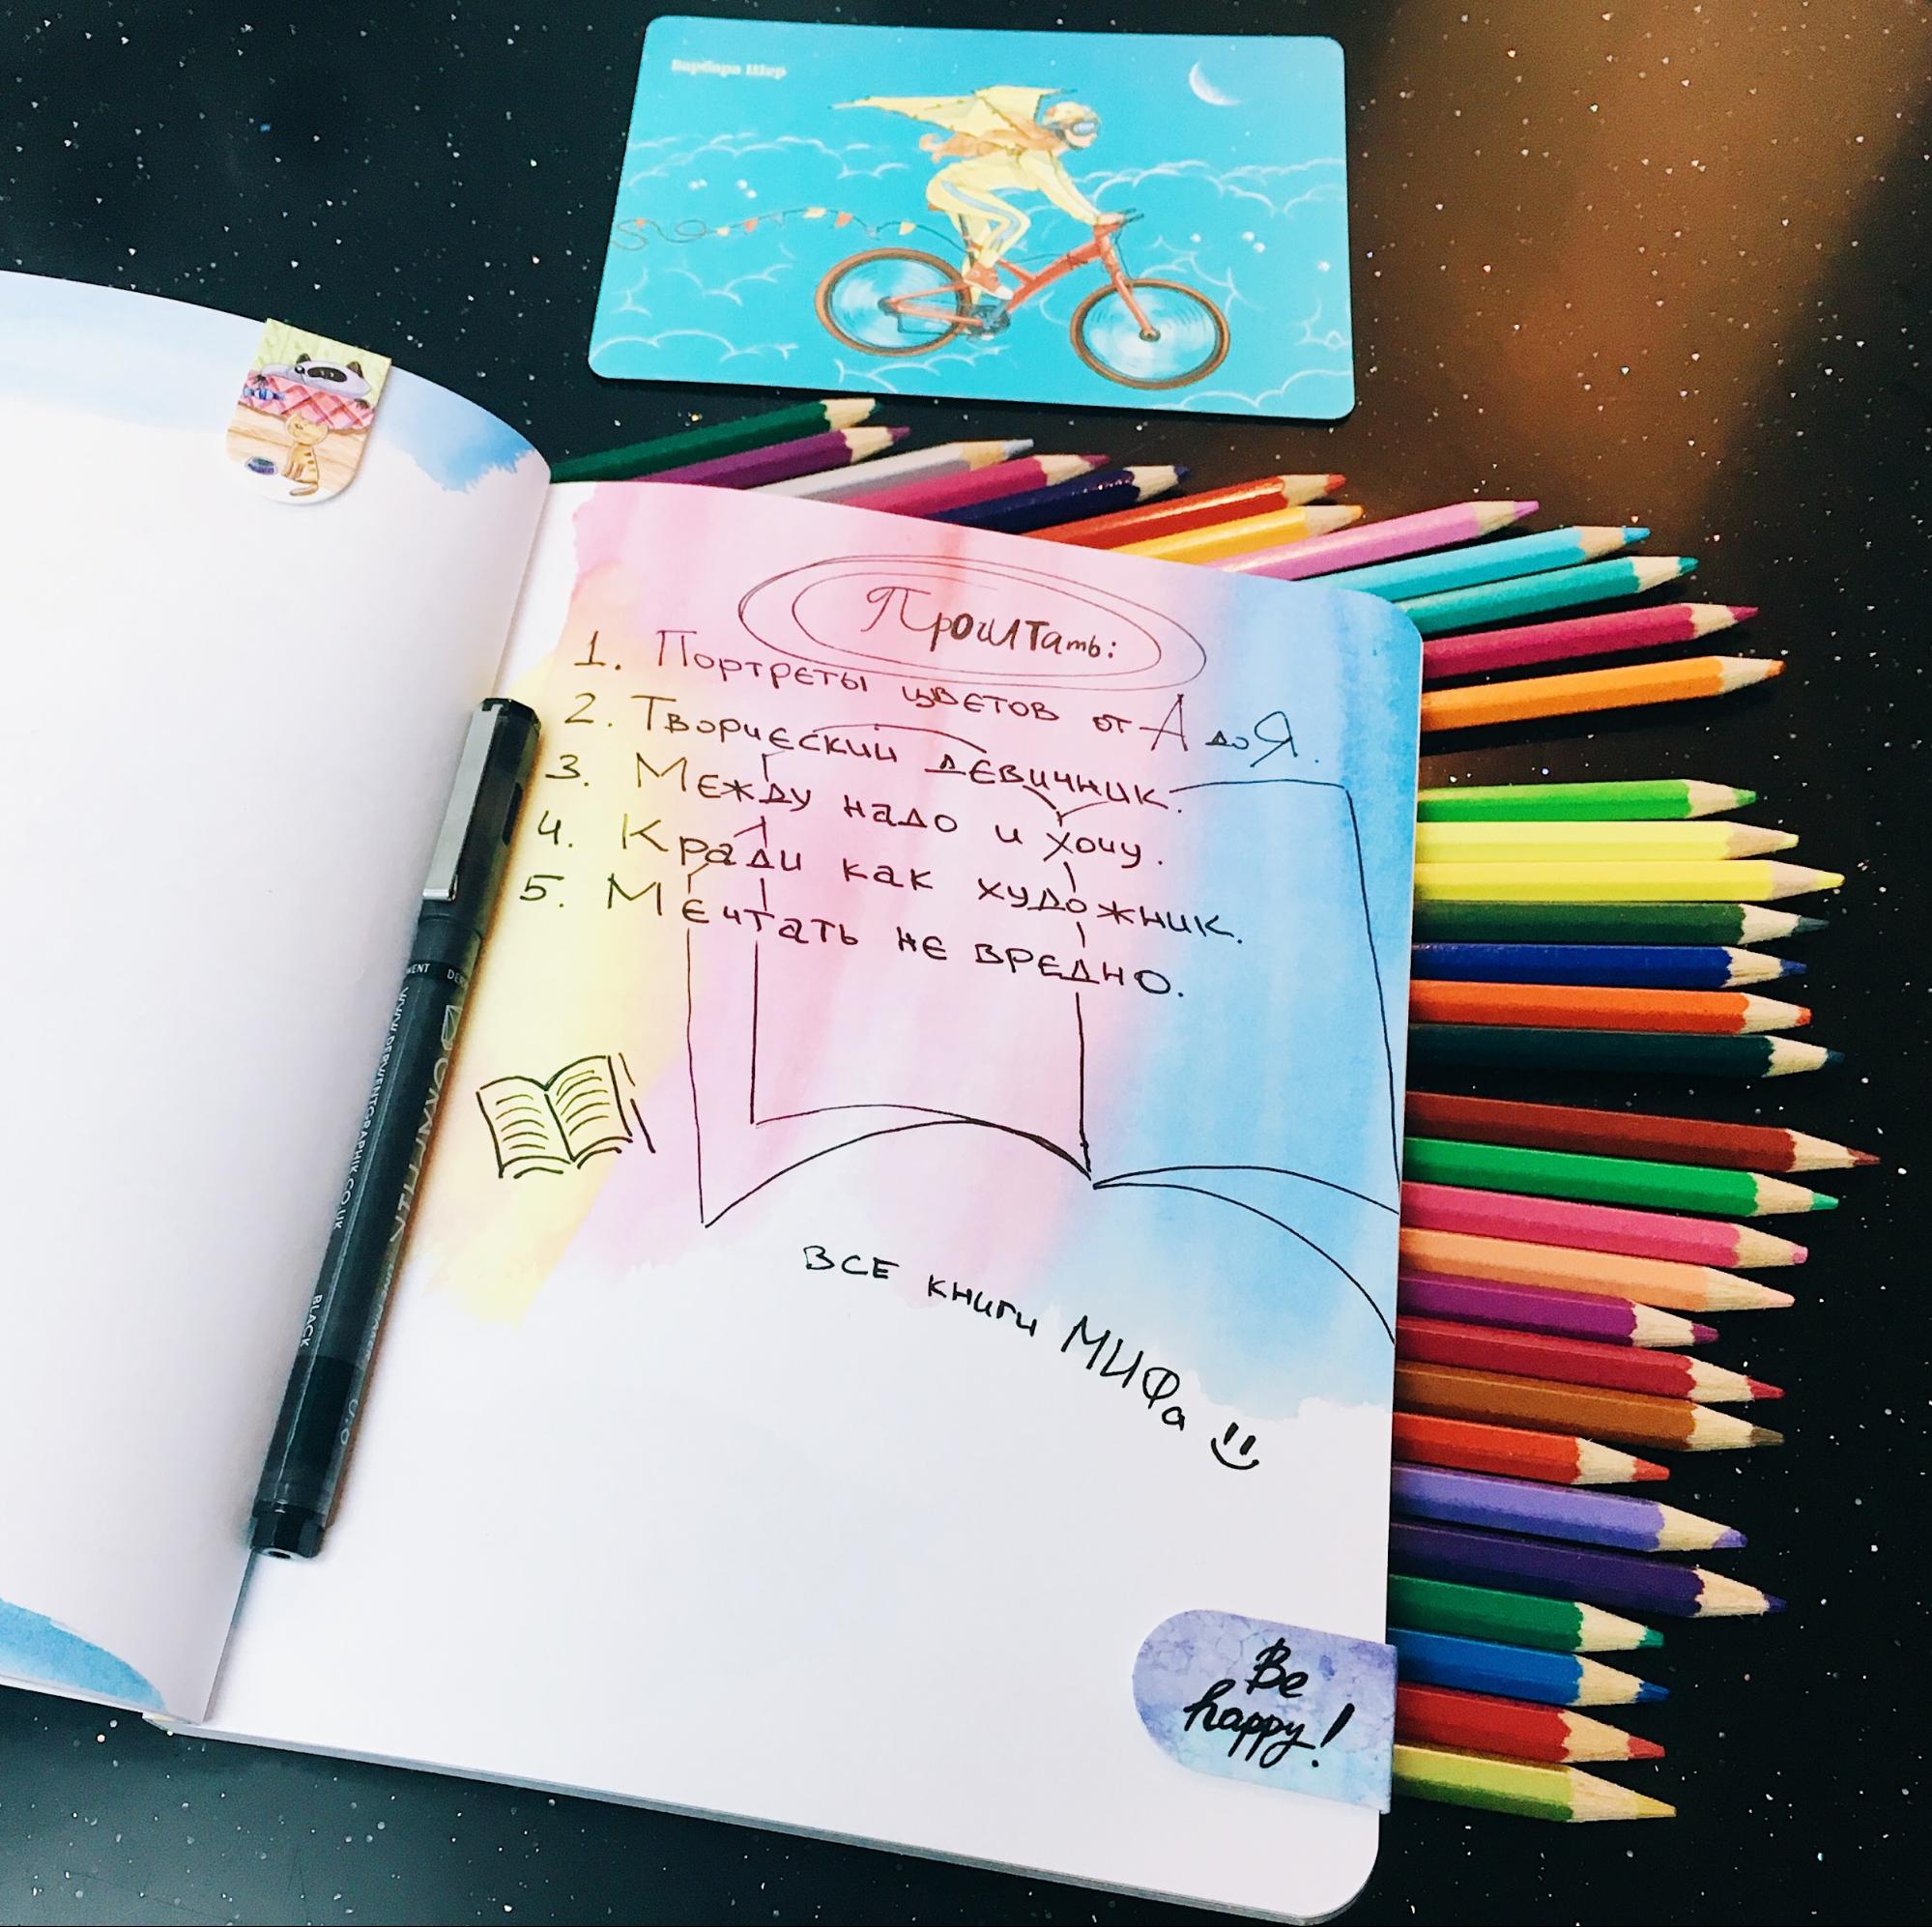 Барбара Шер
Прочитать:
1. Портреты цветов от А до Я.
2. Творческий девичник.
3. Между надо и хочу.
4. Кради как художник.
5. Мечтать не вредно.
все книги МИФа
WWW.DERWENTGRAPHIK.CO.UK
BLACK
Be
happy!